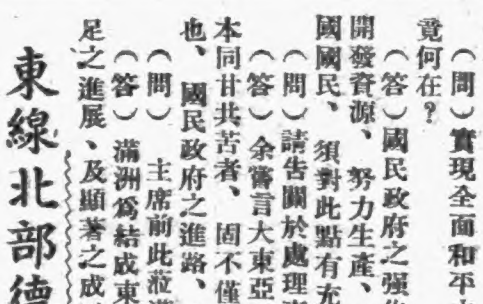 （問）實現全面和平
竟何在？
（答）國民政府之强
開發資源、努力生產、
國國民、須對此點有充
（問）請告關於處理
（答）余嘗言大東亞
本同甘共苦者、固不僅
也、國民政府之進路、
（問）主席前此蒞
（答）滿洲爲結成東
足之進展、及顯著之成
東線北部德